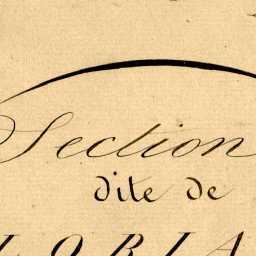 Section
dite de
LORIA